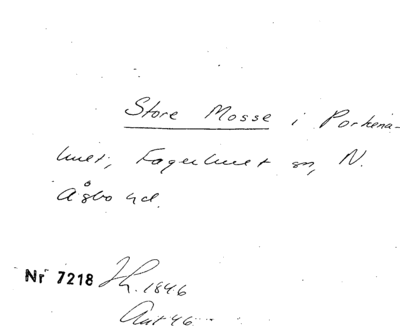 Store Mosse i Porkena-
hult, Fagerhult sn, N.
Åsbo hd.
Nr 7218 Jh. 1846
Ant 46